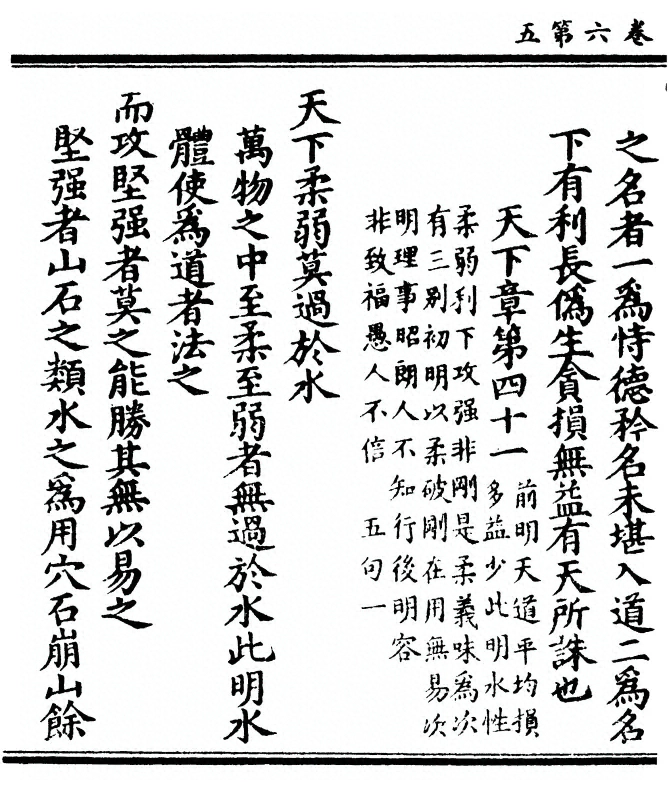 卷六第五
之名者一爲恃德矜名未堪入道二爲名
下有利長僞生貪損無益有天所誅也
天下章第四十一
前明天道平均損
多益少此明水性
柔弱利下攻强非剛是柔義味爲次
有三别初明以柔破剛在用無易次
明理事昭朗人不知行後明容
非致福愚人不信 五句一
天下柔弱莫過於水
萬物之中至柔至弱者無過於水此明水
體使爲道者法之
而攻堅强者莫之能勝其無以易之
堅强者山石之類水之爲用穴石崩山餘